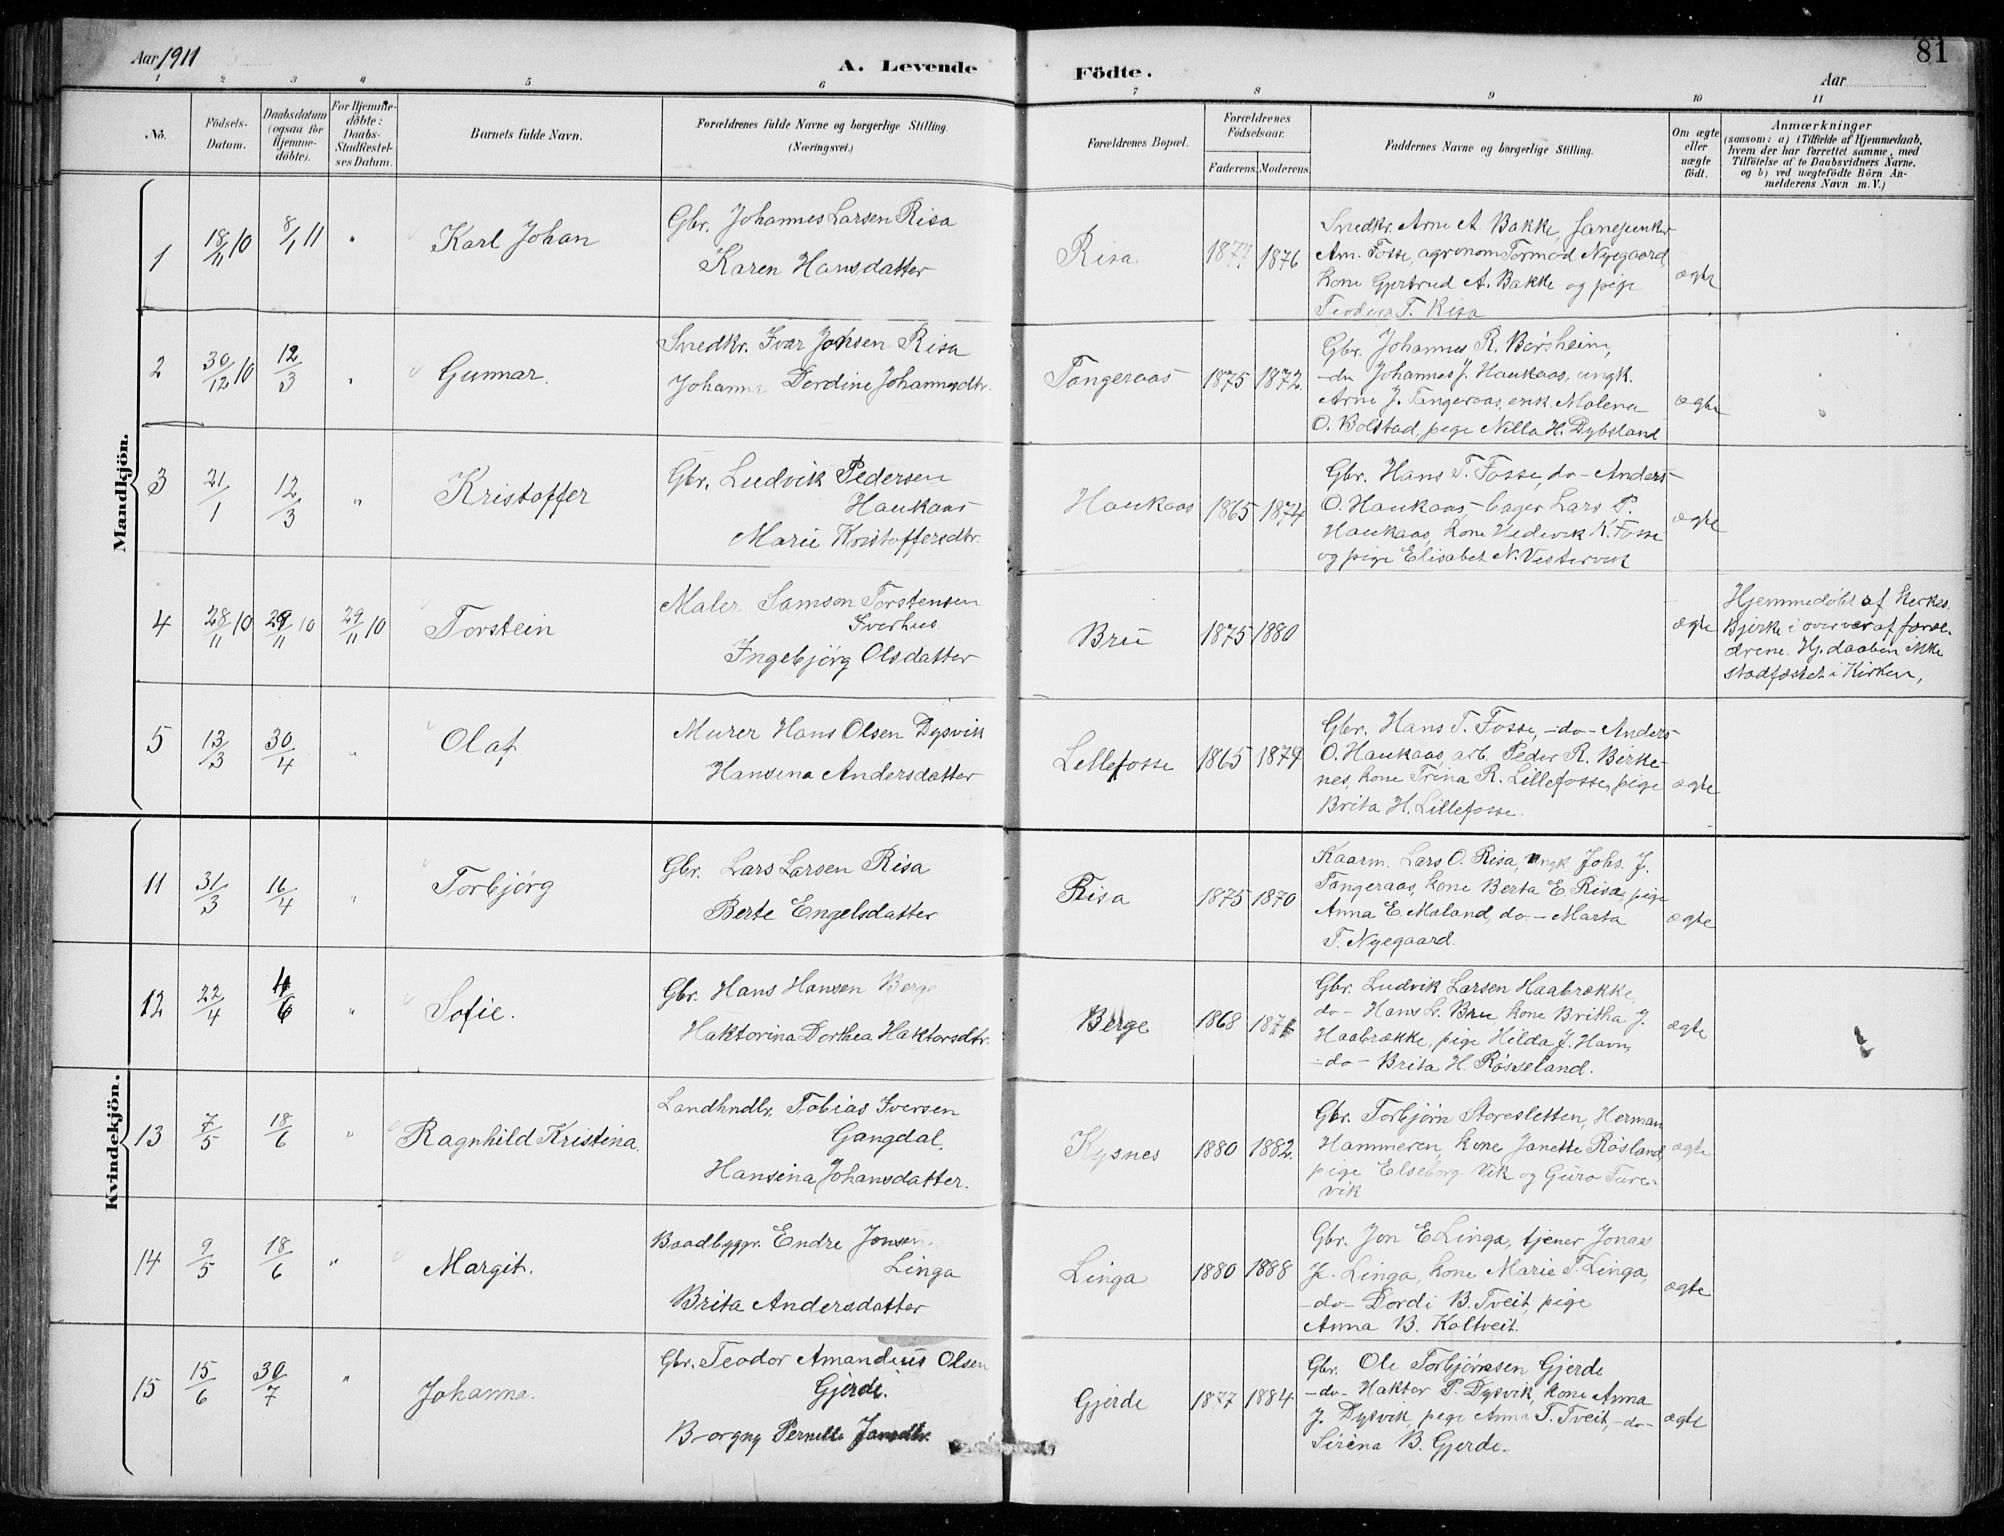 81
Aar 1911
A. Levende Födte.
Aar
1 2 3 4 5 6 7 8 9 10 11
No.
Födsels-Datum.
Daabsdatum (ogsaa for Hjemmedöbte).
For Hjemmedöbte: Daabs-Stadfæstelses Datum.
Barnets fulde Navn.
Forældrenes fulde Navne og borgerlige Stilling. (Næringsvei.)
Forældrenes Bopæl.
Forældrenes Födselsaar.
Faderens. Moderens.
Faddernes Navne og borgerlige Stilling.
Om ægte eller uægte födt.
Anmærkninger
(saasom: a) i Tilfælde af Hjemmedaab, hvem der har forrettet samme, med Tilföielse af to Daabsvidners Navne, og b) ved uægtefödte Börn Anmelderens Navn m. V.)
Mandkjön.
1 18/11 10 8/1 11 " Karl Johan
Gbr. Johannes Larsen Risa
Karen Hansdatter
Risa 1877 1876
Snedkr. Arne A. Bakke,
Am. Fosse, agronom Tormod Nyegaard,
kone Gjertrud A. Bakke og pige
Teodora T. Risa
ægte
2 30/12 10 12/3 " Gunnar.
Snedkr. Ivar Johsen Risa
Johanna Dordine Johannesdtr.
Tangeraas 1875 1872
Gbr. Johannes R. Børsheim,
-do Johannes J. Haukaas, ungk.
Arne J. Tangeraas, enk. Malena
O. Bolstad, pige Nilla H. Dybsland
ægte
3 21/1 12/3 " Kristoffer
Gbr. Ludvik Pedersen
Haukaas
Marie Kristoffersdtr.
Haukaas 1865 1874
Gbr. Hans T. Fosse, do- Anders
O. Haukaas, bager Lars P.
Haukaas, kone Hedevik K. Fosse
og pige Elisabet N. Vestervik
ægte
4 28/11 10 29/11 10 29/11 10 Torstein
Maler Samson Torstensen
Sverhus.
Ingebjörg Olsdatter
Bru 1875 1880
ægte
Hjemmedöbt af Kirkes.
Bjerke i overvær af foræl-
drene. Hj. daaben ikke
stadfæstet i Kirken.
5 13/3 30/4 " Olaf
Murer Hans Olsen Dysvik
Hansina Andersdatter
Lillefosse 1865 1879
Gbr. Hans T. Fosse, -do- Anders
O. Haukaas, arb. Peder R. Birke-
nes, kone Trina R. Lillefosse, pige
Brita H. Lillefosse.
ægte
Kvindekjön.
11 31/3 16/4 " Torbjörg
Gbr. Lars Larsen Risa
Berte Engelsdatter
Risa 1875 1870
Kaarm. Lars O. Risa, ungk Johs. J.
Tangeraas, kone Berta E. Risa, pige
Anna E. Maland, do. - Marta
T. Nyegaard.
ægte
12 22/4 4/6 " Sofie.
Gbr. Hans Hansen Berge
Haktorina Dorthea Haktorsdtr.
Berge 1868 1871
Gbr. Ludvik Larsen Haabrække,
do- Hans L. Bru, kone Britha J.
Haabrække, pige Hilda J. Havn,
-do- Brita H. Røsseland.
ægte
13 7/5 18/6 " Ragnhild Kristina.
Landhndlr. Tobias Iversen
Gangdal.
Hansina Johansdatter.
Kysnes 1880 1882.
Gbr. Torbjørn Storesletten, Herman
Hammeren, kone Janette Røsland,
pige Elseborg Vik og Guro Ture-
vik
ægte
14 9/5 18/6 " Margit.
Baadbyggr. Endre Jonsen
Linga
Brita Andersdatter
Linga 1880 1888
Gbr. Jon E Linga, tjener Jonas
J. Linga, kone Marie T. Linga,
-do- Dordi B. Tveit, pige
Anna B. Koltveit.
ægte
15 15/6 30/7 " Johanna.
Gbr. Teodor Amandius Olsen
Gjerde.
Borgny Pernelle Jansdtr.
Gjerde 1877 1884
Gbr. Ole Torbjørnsen Gjerde
-do- Haktor P. Dysvik, kone Anna
J. Dysvik, pige Anna T. Tveit, -do-
Sirena B. Gjerde.
ægte